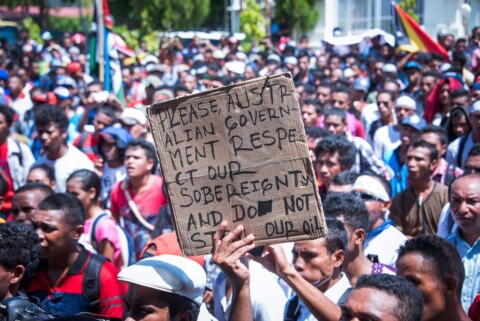 PLEASE AUSTR
ALIAN GOVERN
MENT RESPE
CT OUR
SOBEREIGNTY
AND DO NOT
OUR OIL